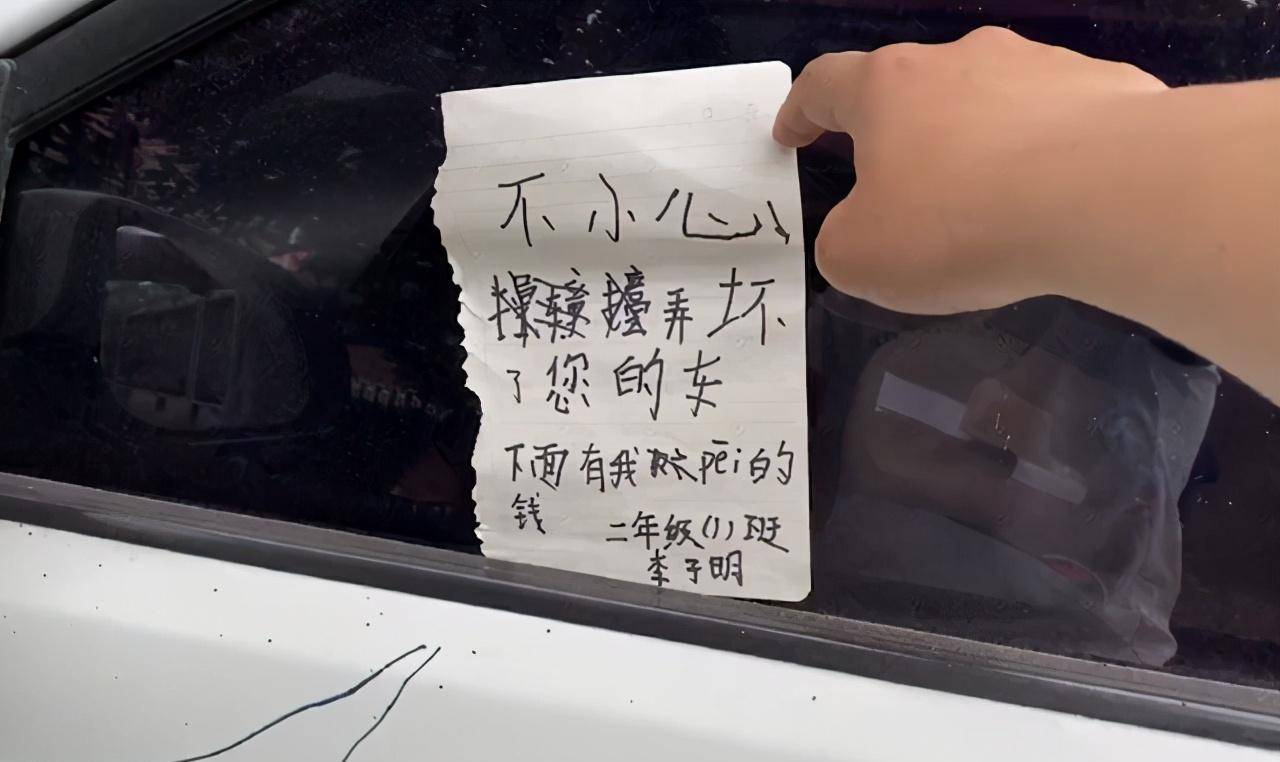 不小心
弄坏
了您的车
下面有我pēi的
钱
二年级(1)班
李子明